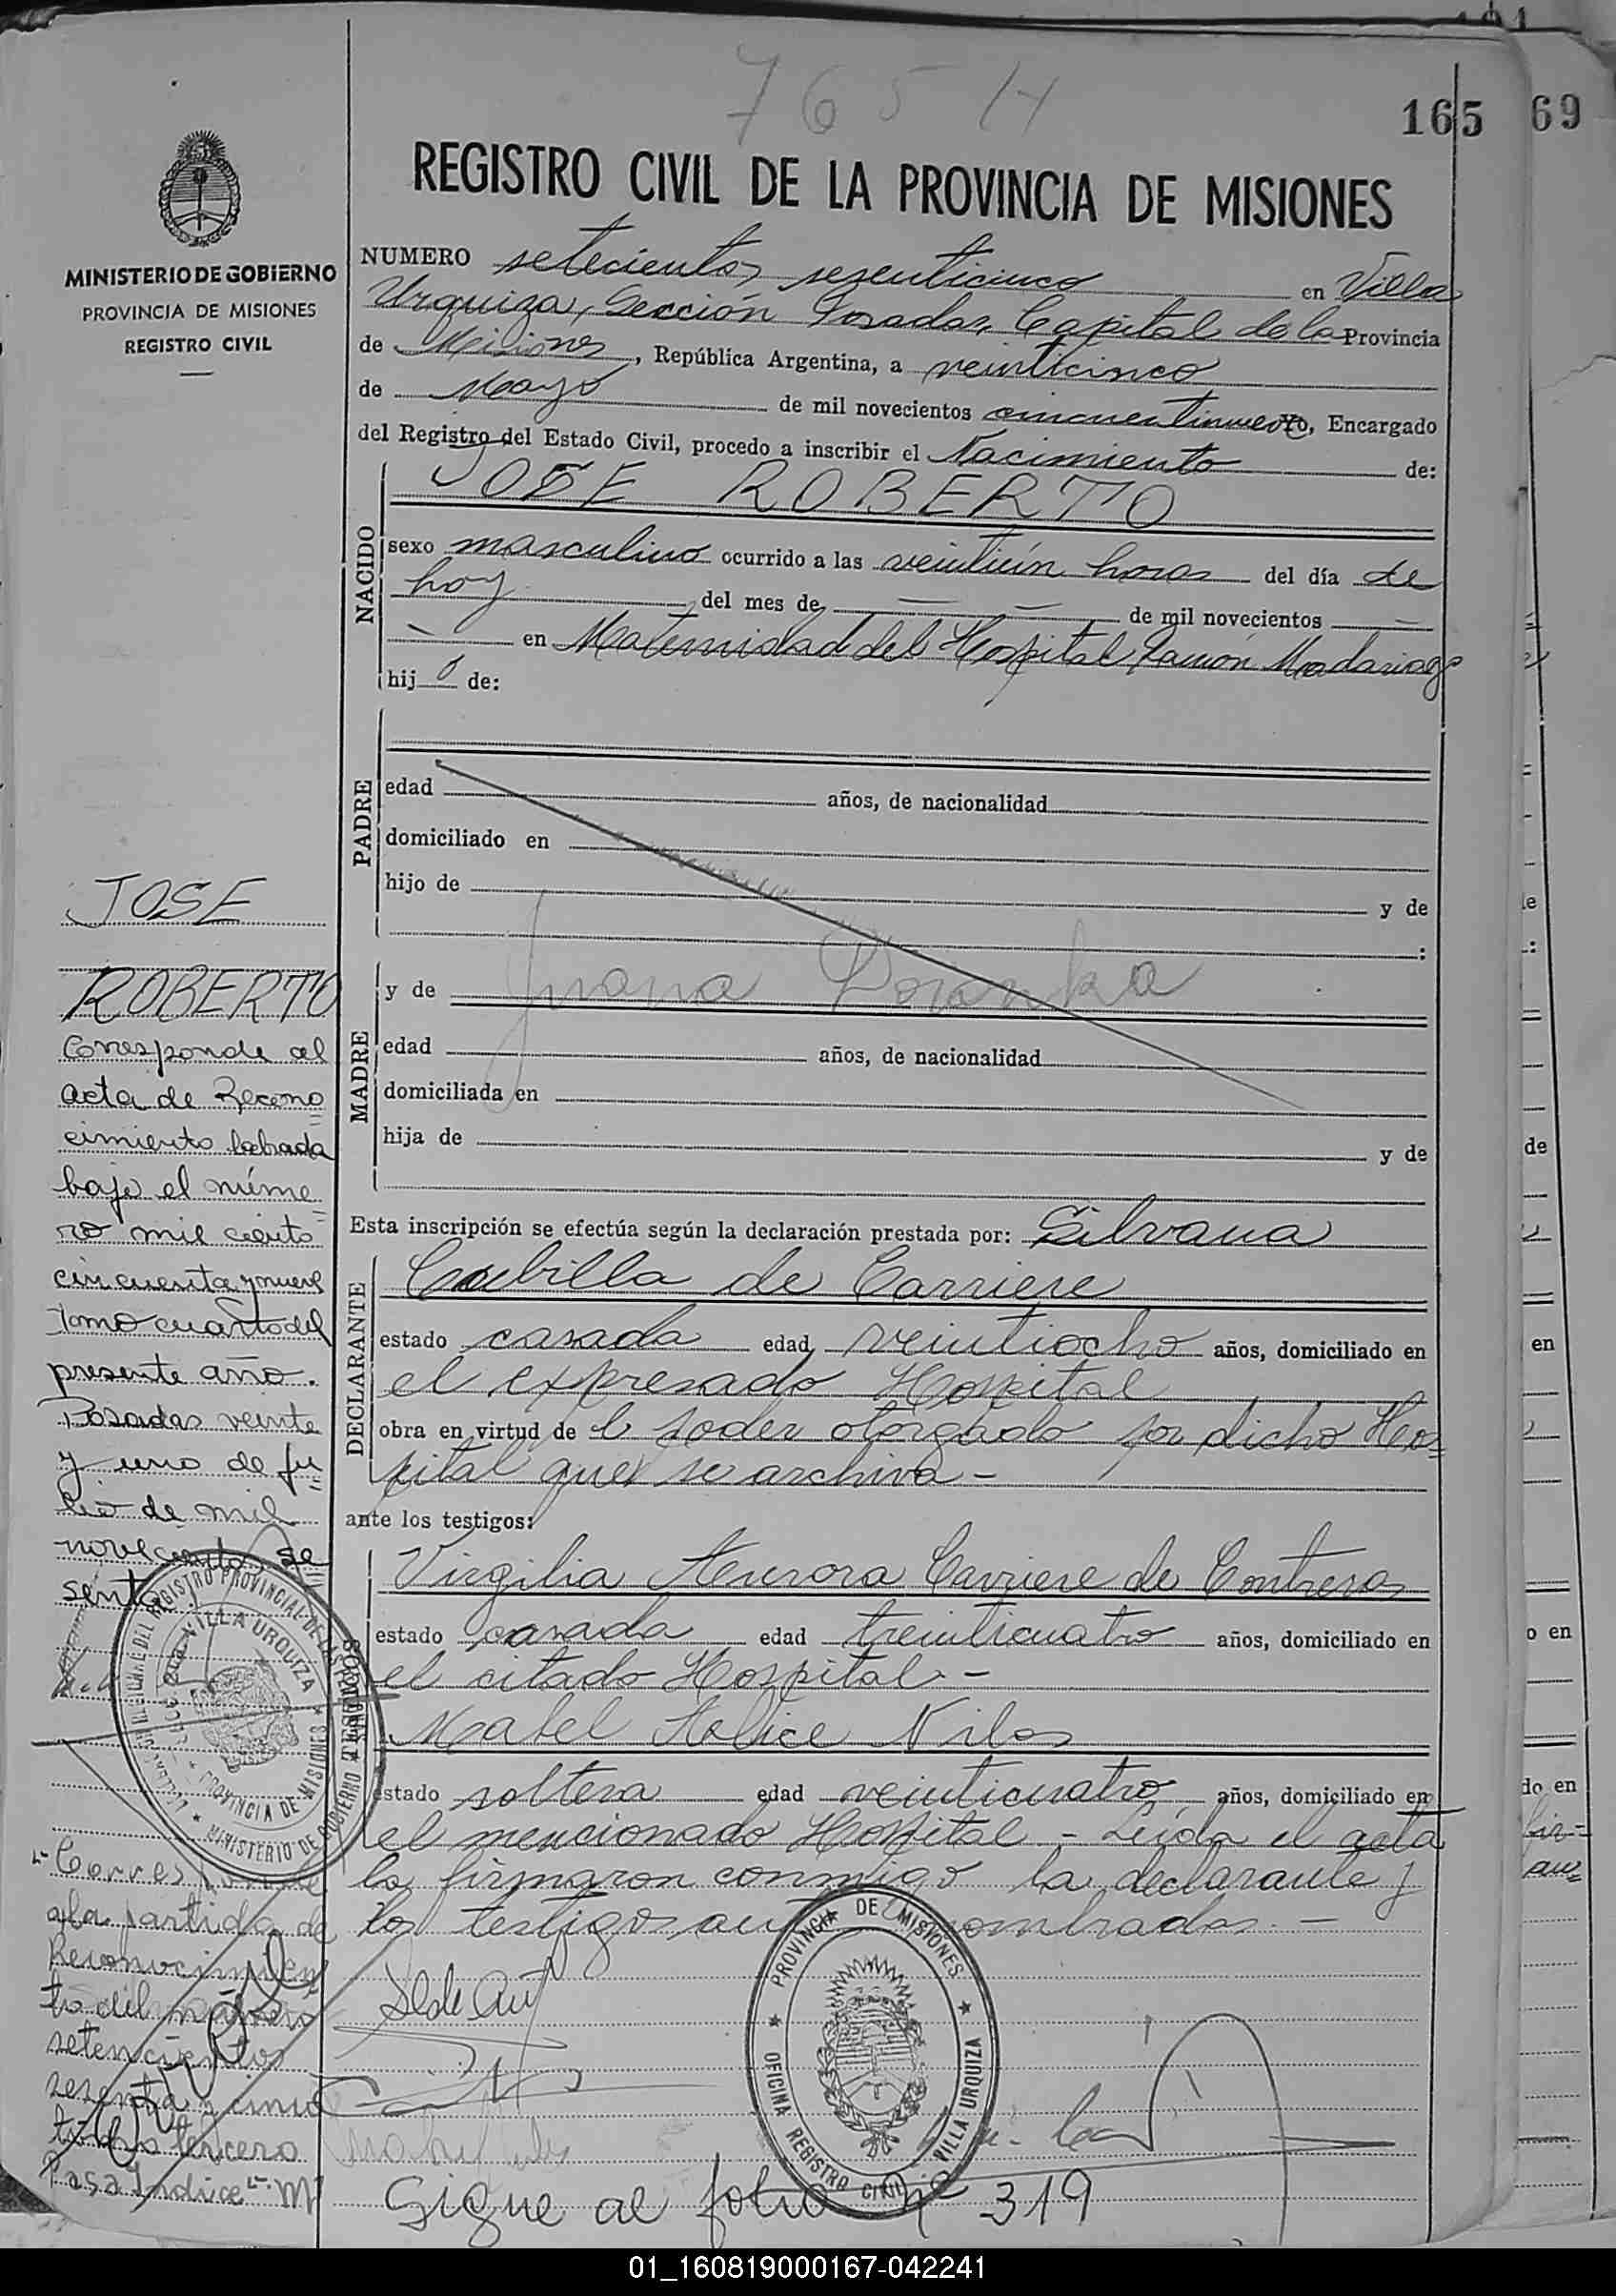 165 69
765 H
REGISTRO CIVIL DE LA PROVINCIA DE MISIONES
MINISTERIO DE GOBIERNO
PROVINCIA DE MISIONES
REGISTRO CIVIL
NUMERO setecientos sesenticinco en Villa
Urquiza, Sección Posadas, Capital de la Provincia
de Misiones, República Argentina, a veinticinco
de Mayo de mil novecientos cincuentinueve, Encargado
del Registro del Estado Civil, procedo a inscribir el Nacimiento de:
JOSE ROBERTO
NACIDO
sexo masculino ocurrido a las veintiún horas del día de
hoy del mes de — — de mil novecientos —
— en Maternidad del Hospital Ramón Madariaga
hijo de:
PADRE
edad años, de nacionalidad
domiciliado en
hijo de y de
:
MADRE
y de Juana
edad años, de nacionalidad
domiciliada en
hija de y de
Esta inscripción se efectúa según la declaración prestada por: Silvana
DECLARANTE
Cubilla de Carriere
estado casada edad veintiocho años, domiciliado en
el expresado Hospital
obra en virtud de l poder otorgado por dicho Hos-
pital que se archiva -
ante los testigos:
TESTIGOS
Virgilia Aurora Carriere de Contreras
estado casada edad treinticuatro años, domiciliado en
el citado Hospital. -
Mabel Alice Nilos
estado soltera edad veinticuatro años, domiciliado en
el mencionado Hospital - Leída el acta
la firmaron conmigo la declarante y
los testigos nombrados. -
Sigue al folio nº 319
JOSE
ROBERTO
Corresponde al
acta de Recono
cimiento labrada
bajo el núme
ro mil ciento
cincuenta y nueve
tomo cuarto del
presente año.
Posadas veinte
y uno de ju
lio de mil
novecientos se
senta
Corresponde
a la partida de
Reconocimien
to del número
setencientos
sesenta y cinco
tomo tercero
Pasa Indice
PROVINCIA DE MISIONES
OFICINA REGISTRO CIVIL VILLA URQUIZA
VILLA URQUIZA
PROVINCIA DE MISIONES
MINISTERIO DE GOBIERNO
01_160819000167-042241